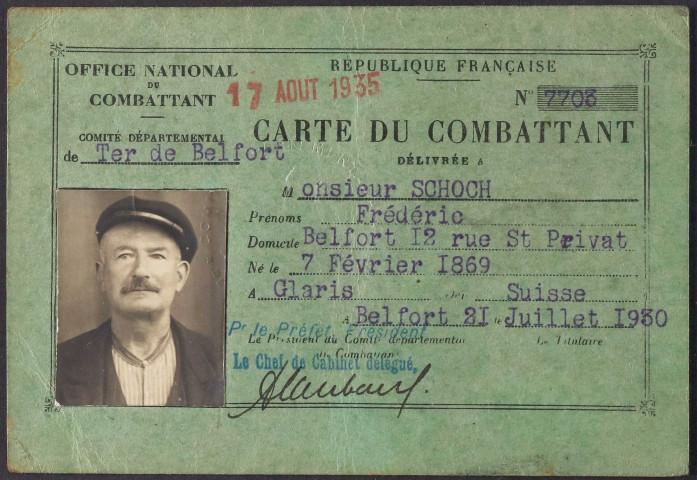 OFFICE NATIONAL
DU
COMBATTANT
17 AOUT 1935
RÉPUBLIQUE FRANÇAISE
N° 7703
COMITÉ DÉPARTEMENTAL
de Ter de Belfort
CARTE DU COMBATTANT
DÉLIVRÉE à
M onsieur SCHOCH
Prénoms Frédéric
Domicile Belfort I2 rue St Privat
Né le 7 Février I869
A Glaris Suisse
A Belfort 2I le Juillet I930
Pr le Préfet, Président
Le Président du Comité départemental Le Titulaire
du Combattant
Le Chef de Cabinet délégué,